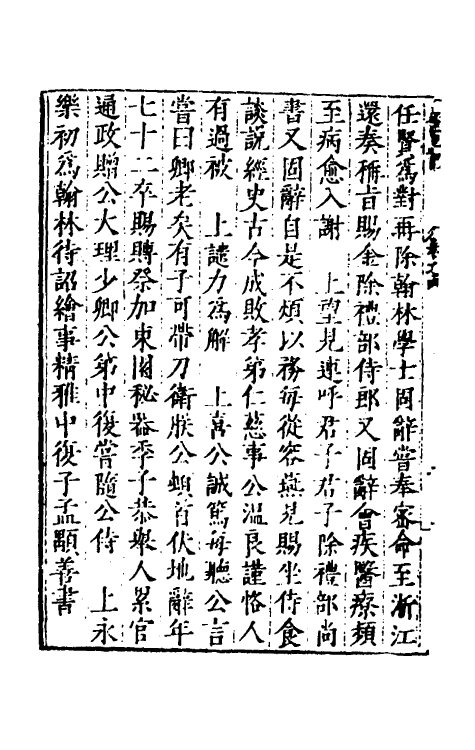 任賢爲對再除翰林學士固辭嘗奉密命至浙江
還奏稱旨賜金除禮部侍郎又固辭會疾醫療頻
至病愈入謝　上望見連呼君子君子除禮部尚
書又固辭自是不煩以務每從容燕見賜坐侍食
談說經史古今成敗孝第仁慈事公溫良謹恪人
有過被　上譴力爲解　上喜公誠篤每聽公言
嘗曰卿老矣有子可帶刀衛朕公頓首伏地辭年
七十二卒賜賻祭加東園秘器季子恭舉人累官
通政贈公大理少卿公第中復嘗隨公侍　上永
樂初爲翰林待詔繪事精雅中復子孟顒善書